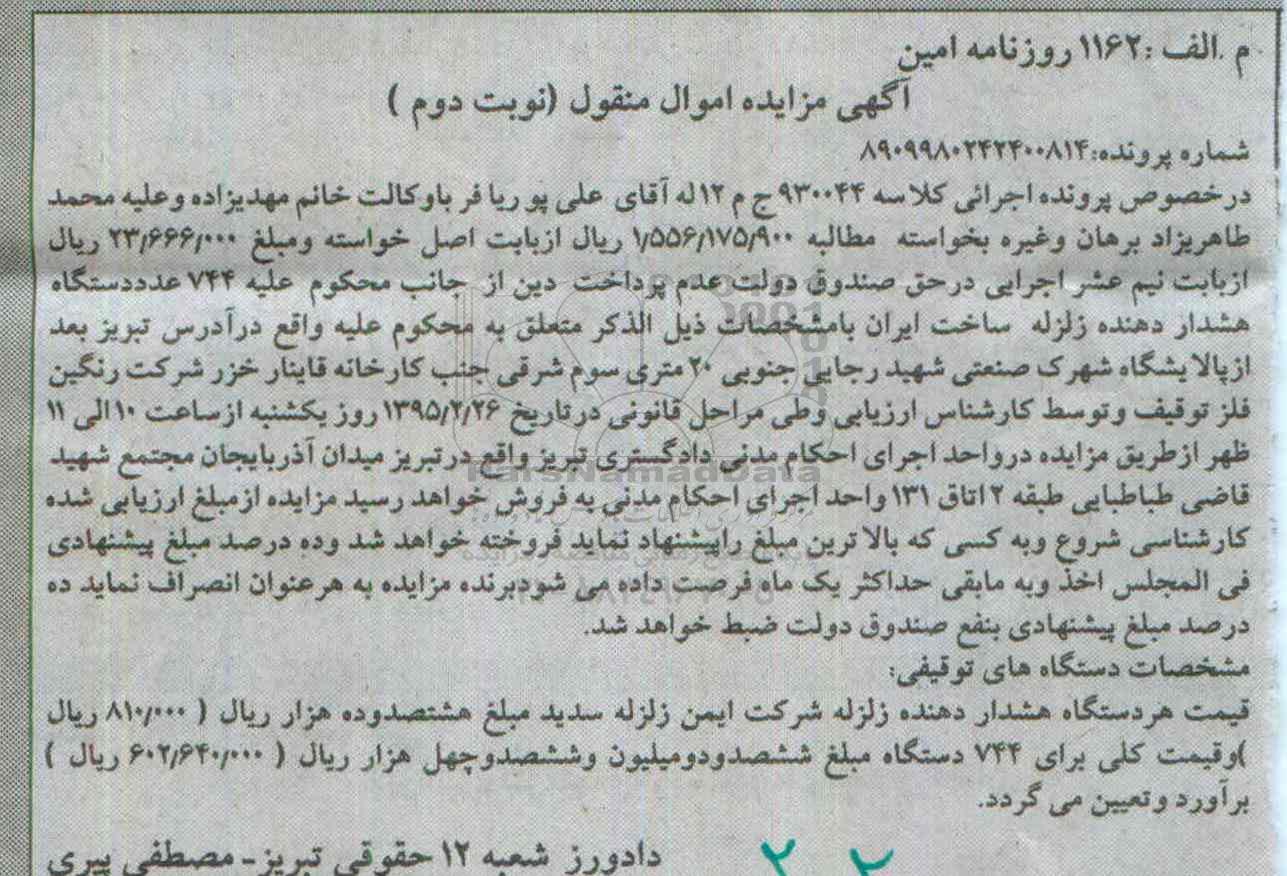 م .الف :۱۱۶۲ روزنامه امین
آگهی مزایده اموال منقول (نوبت دوم )
شماره پرونده:۸۹۰۹۹۸۰۲۴۲۴۰۰۸۱۴
درخصوص پرونده اجرائی کلاسه ۹۳۰۰۴۴ ج م ۱۲ له آقای علی پوریا فر باوکالت خانم مهدیزاده وعلیه محمد
طاهریزاد برهان وغیره بخواسته مطالبه ۱/۵۵۶/۱۷۵/۹۰۰ ریال ازبابت اصل خواسته ومبلغ ۲۳/۶۶۶/۰۰۰ ریال
ازبابت نیم عشر اجرایی درحق صندوق دولت عدم پرداخت دین از جانب محکوم علیه ۷۴۴ عدددستگاه
هشدار دهنده زلزله ساخت ایران بامشخصات ذیل الذکر متعلق به محکوم علیه واقع درآدرس تبریز بعد
ازپالایشگاه شهرک صنعتی شهید رجایی جنوبی ۲۰ متری سوم شرقی جنب کارخانه قاینار خزر شرکت رنگین
فلز توقیف وتوسط کارشناس ارزیابی وطی مراحل قانونی درتاریخ ۱۳۹۵/۲/۲۶ روز یکشنبه ازساعت ۱۰ الی ۱۱
ظهر ازطریق مزایده درواحد اجرای احکام مدنی دادگستری تبریز واقع درتبریز میدان آذربایجان مجتمع شهید
قاضی طباطبایی طبقه ۲ اتاق ۱۳۱ واحد اجرای احکام مدنی به فروش خواهد رسید مزایده ازمبلغ ارزیابی شده
کارشناسی شروع وبه کسی که بالا ترین مبلغ راپیشنهاد نماید فروخته خواهد شد وده درصد مبلغ پیشنهادی
فی المجلس اخذ وبه مابقی حداکثر یک ماه فرصت داده می شودبرنده مزایده به هرعنوان انصراف نماید ده
درصد مبلغ پیشنهادی بنفع صندوق دولت ضبط خواهد شد.
مشخصات دستگاه های توقیفی:
قیمت هردستگاه هشدار دهنده زلزله شرکت ایمن زلزله سدید مبلغ هشتصدوده هزار ریال ( ۸۱۰/۰۰۰ ریال
)وقیمت کلی برای ۷۴۴ دستگاه مبلغ ششصدودومیلیون وششصدوچهل هزار ریال ( ۶۰۲/۶۴۰/۰۰۰ ریال )
برآورد وتعیین می گردد.
دادورز شعبه ۱۲ حقوقی تبریز- مصطفی پیری
ParsNamadData